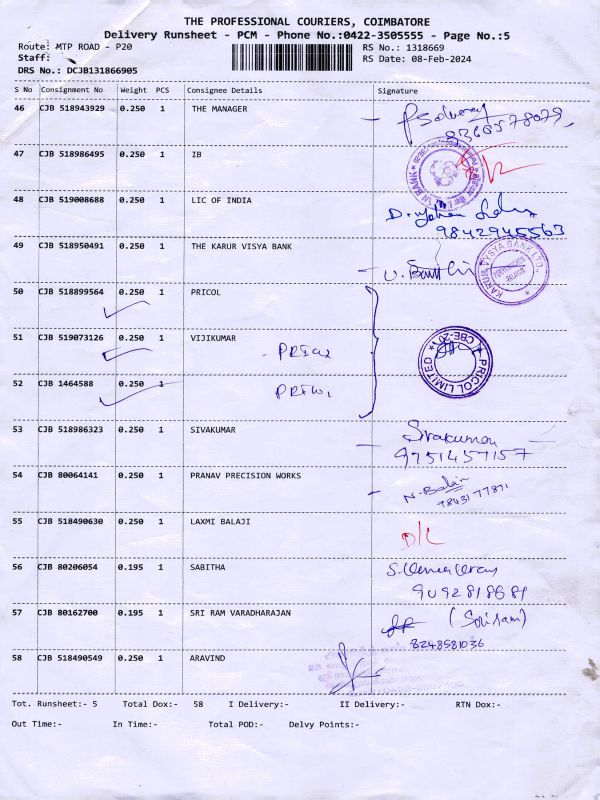 THE PROFESSIONAL COURIERS, COIMBATORE
Delivery Runsheet - PCM - Phone No.:0422-3505555 - Page No.:5
Route: MTP ROAD - P20 RS No.: 1318669
Staff: RS Date: 08-Feb-2024
DRS No.: DCJB131866905
S No Consignment No Weight PCS Consignee Details Signature
46 CJB 518943929 0.250 1 THE MANAGER
47 CJB 518986495 0.250 1 IB
48 CJB 519008688 0.250 1 LIC OF INDIA
9842945563
49 CJB 518950491 0.250 1 THE KARUR VISYA BANK
KARUR VYSYA BANK LTD.
50 CJB 518899564 0.250 1 PRICOL
51 CJB 519073126 0.250 1 VIJIKUMAR
PRICOL LIMITED
52 CJB 1464588 0.250 1
53 CJB 518986323 0.250 1 SIVAKUMAR Sivakumar
9751457157
54 CJB 80064141 0.250 1 PRANAV PRECISION WORKS N. Balan
9843177871
55 CJB 518490630 0.250 1 LAXMI BALAJI D/L
56 CJB 80206054 0.195 1 SABITHA
57 CJB 80162700 0.195 1 SRI RAM VARADHARAJAN (Sriram)
8248581036
58 CJB 518490549 0.250 1 ARAVIND
Tot. Runsheet:- 5 Total Dox:- 58 I Delivery:- II Delivery:- RTN Dox:-
Out Time:- In Time:- Total POD:- Delvy Points:-